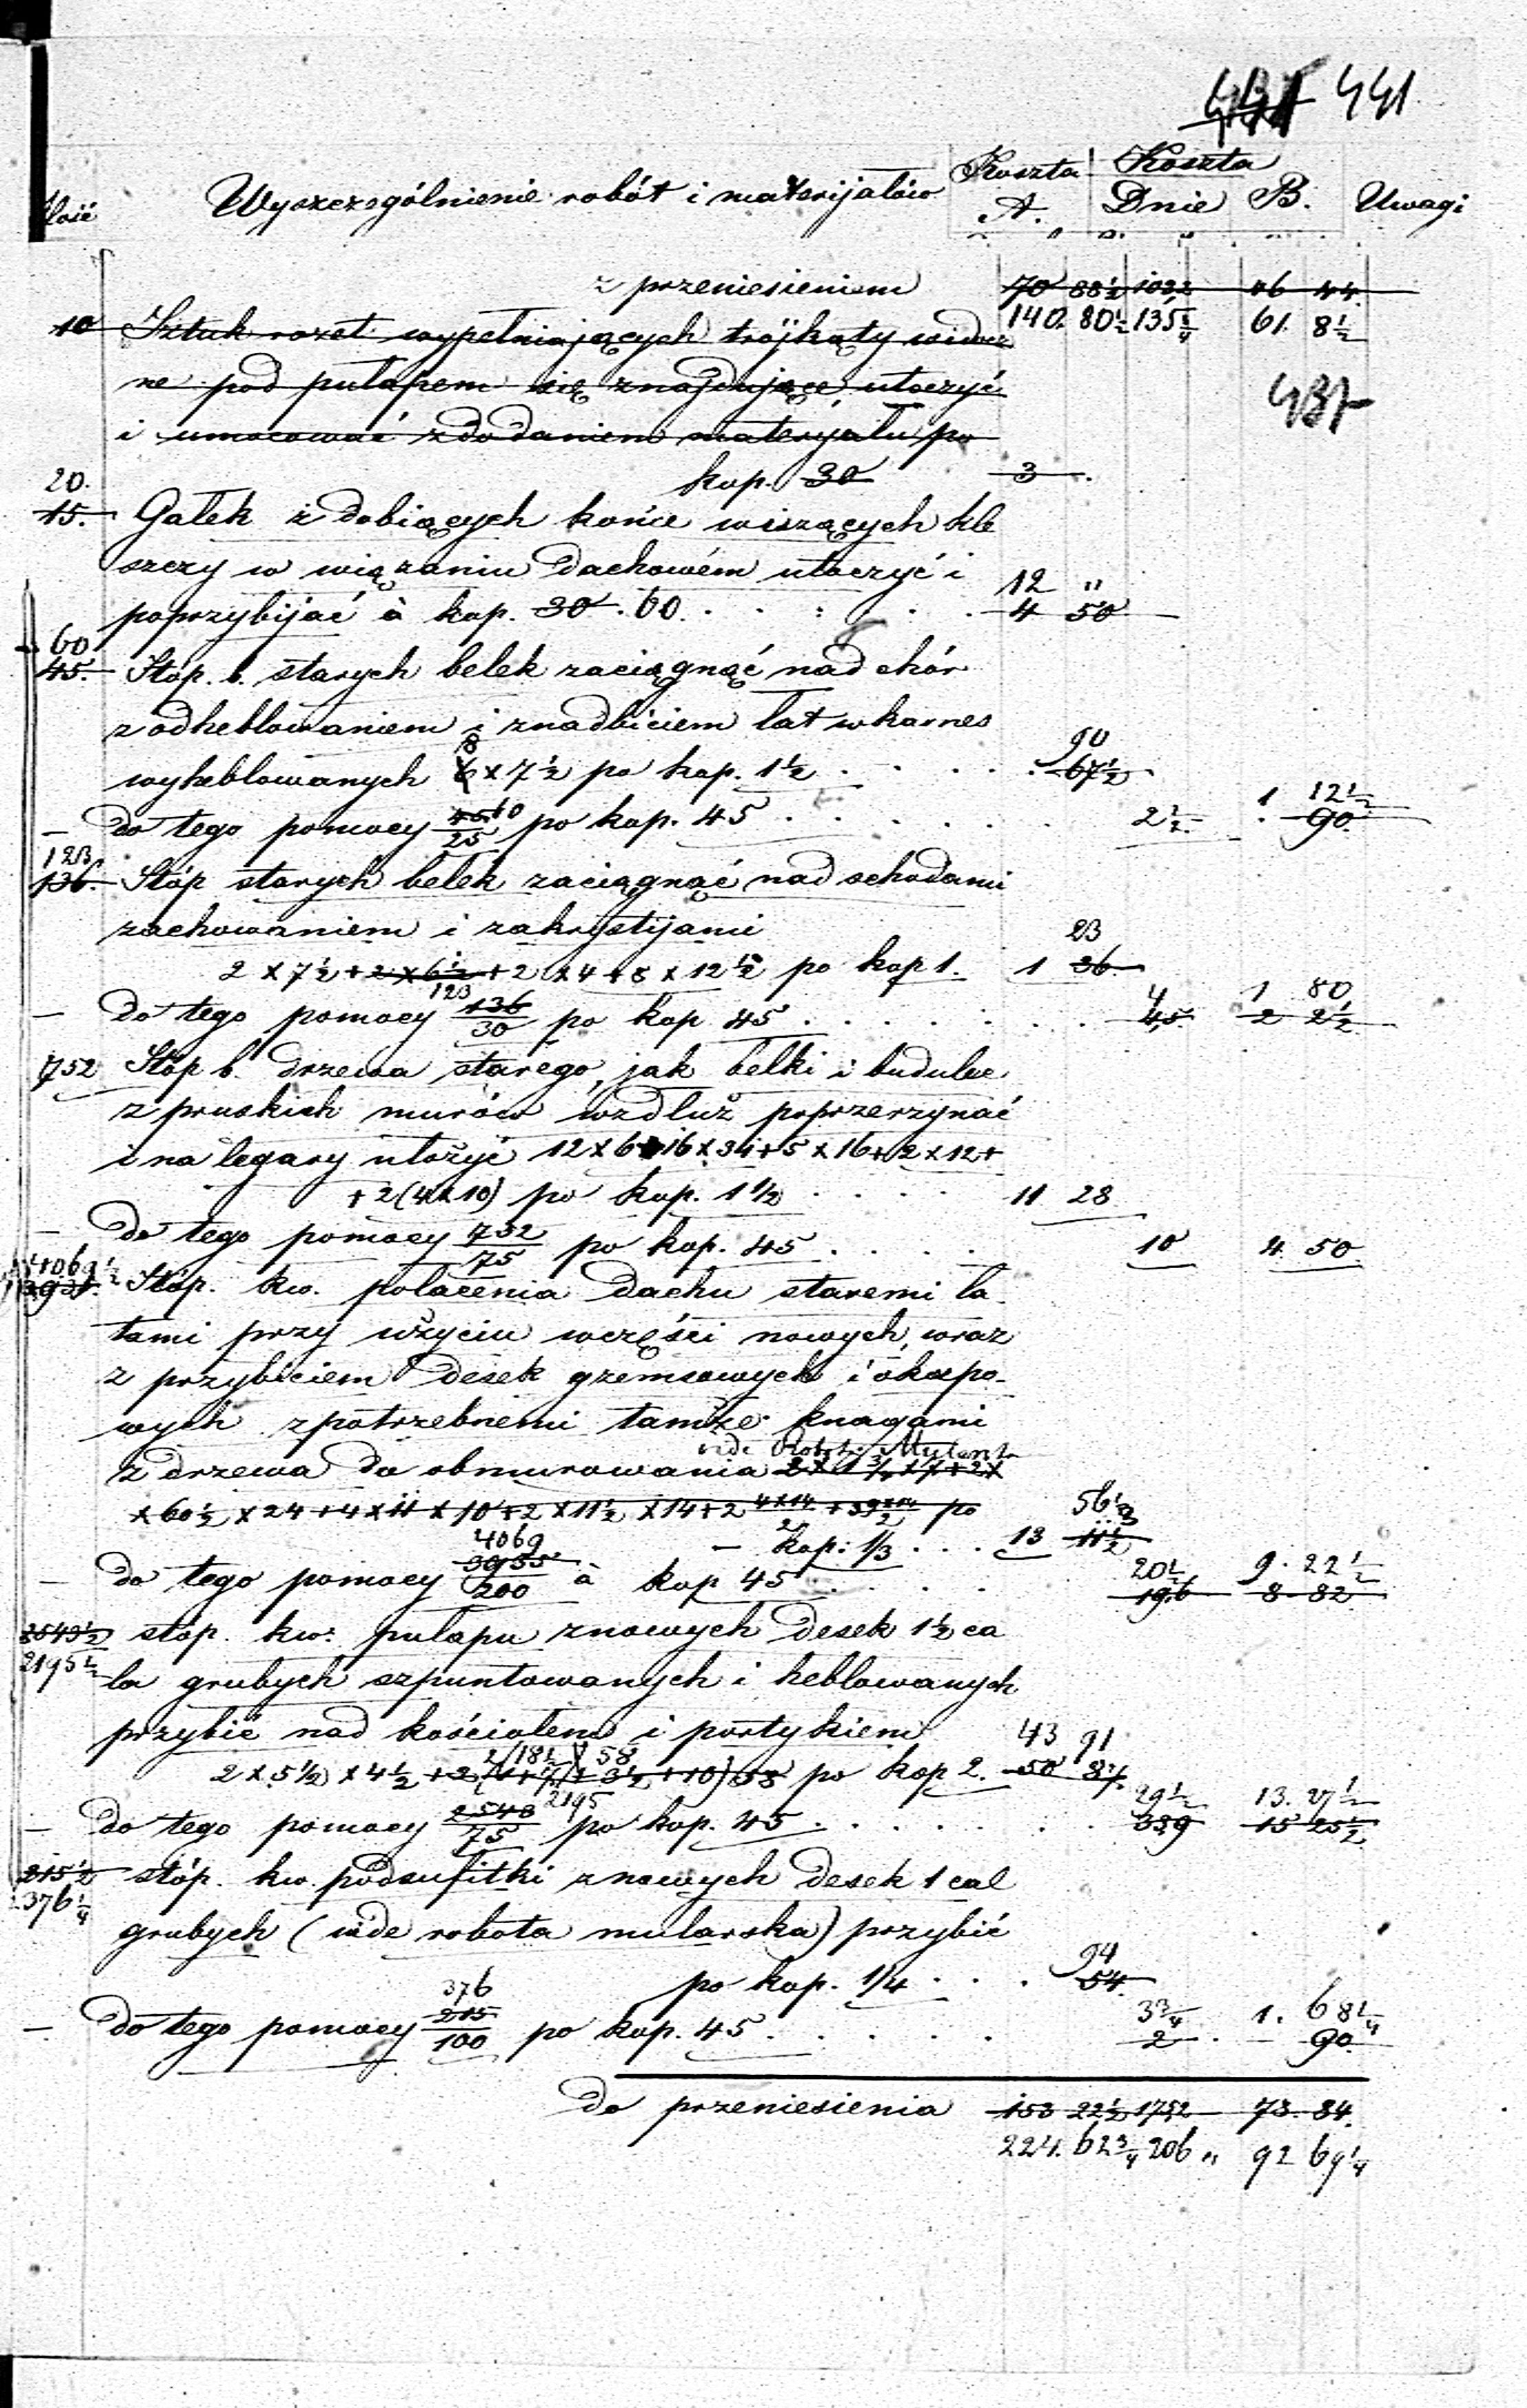 441
Ilość Wyszczególnienie robót i materijałów Koszta A. Koszta Dnie B. Uwagi
z przeniesieniem 70 88½ 103,2 46 44.
140. 80½ 135¼ 61. 8½
10 Sztuk rozet wypełniających trójkąty widocz
ne pod pułapem się znajdujące utoczyć
437
i umocować z dodaniem materyału po
kop. 30 3
20.
15. Gałek zdobiących końce wiszących kle
szczy w wiązaniu dachowém utoczyć i 12 "
poprzybijać à kop. 30. 60. 4 50
60
45. Stóp. b. starych belek zaciągnąć nad chór
z odheblowaniem i znadbiciem łat w karnes
8 90
wyheblowanych 6 x 7½ po kop. 1½ 67½
— do tego pomocy 45 60/25 po kop. 45 2½ 1 12½ 90.
123.
136. Stóp starych belek zaciągnąć nad schodami
zachowaniem i zakrystijami 23
2 x 7½ + 2 x 6½ + 2 x 4 + 8 x 12½ po kop 1. 1 36.
123 4 1 80
— do tego pomocy 136/30 po kop 45 4,5 2 2½
752 Stóp b. drzewa starego, jak belki i budulec
z pruskich murów wzdłuż poprzerzynać
i na legary ułożyć 12 x 6 + 16 x 34 + 5 x 16 + 2 x 12 +
+ 2 (4 x 10) po kop. 1½ 11 28
— do tego pomocy 752/75 po kop. 45 10 4. 50
4069½
Stóp. kw. połacenia dachu staremi ła-
tami przy użyciu wczęści nowych, wraz
z przybiciem desek gzemsowych i okapo-
wych z potrzebnemi tamże knagami
vide Robota Mularska
z drzewa do obmurowania
x 60½ x 24 + 4 x 11 x 10 + 2 x 11½ x 14 + 2 4x14/2 + po 56⅓
— kop: 1/3 13 11½
4069
— do tego pomocy 3935/200 à kop 45 20½ 9. 22½
19,6 8 82
2543½ stóp. kw. pułapu znowych desek 1½ ca
2195½ la grubych szpuntowanych i heblowanych
przybić nad kościołem i portykiem 43 91
2 x 5½ x 4½ po kop 2. 50 87.
2195 29½ 13. 27½
— do tego pomocy 2543/75 po kop. 45 33,9 15 25½
215½ stóp. kw. podsufitki znowych desek 1 cal
376¼
grubych (vide robota mularska) przybić
94
po kop. 1/4 54.
376 3¾ 1. 68¼
— do tego pomocy 215/100 po kop. 45 2 — 90.
do przeniesienia 153 22½ 175,2 73. 84.
224. 62¾ 206 " 92 69¼